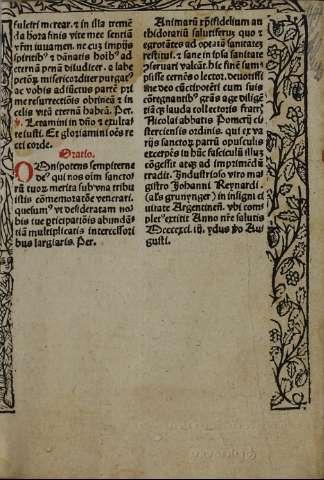 suleri merear. ⁊ in illa tremē
da hora finis vite mee sentiā
vr̄m iuuamen. ne cuȝ impijs
spiritibꝰ ⁊ dānatis hoībꝰ ad
eternā penā
petoqȝ misericorditer purgat
ac vobis adiūctus partē
me resurrectiōis obtineā ⁊ in
celis vitā eternā habeā. Per.
Letamini in dn̄o ⁊ exulta
te iusti. Et gloriamini oēs re
cti corde.
Oratio.
OMnipotens sempiterne
deꝰ qui nos oim sanctoꝝ
merita sub vna tribu
isti cōmemoratōe venerari.
quesumꝰ vt desideratam no
bis tue propiciatiōis abundā
tiā multiplicatis intercessori
bus largiaris. Per.
Animarū fidelium an
thidotariū salutiferuȝ quo ⁊
egrotātes ad optatā sanitateȝ
restitui. ⁊ sane in ipsa sanitate
valeāt. hic finē sum
psisse cernēs o lector. deuotissi
me deo cūctipotēti cum suis
grās age
tiā qȝ lauda collectoris fratris
Nicolai abbatis Pomerij ci
sterciensis ordinis. qui ex va
rijs sanctoꝝ patrū opusculis
excerptos in hūc fasciculū
cōgessit atqȝ ad imprimēdū
tradit. Industrioso viro ma
gistro Johanni Reynardi
(als grunynger) in insigni ci
uitate Argentineñ. vbi com
pletꝰ extitit Anno nr̄e salutis
Mcccccl. iij. ydus Au
gusti.